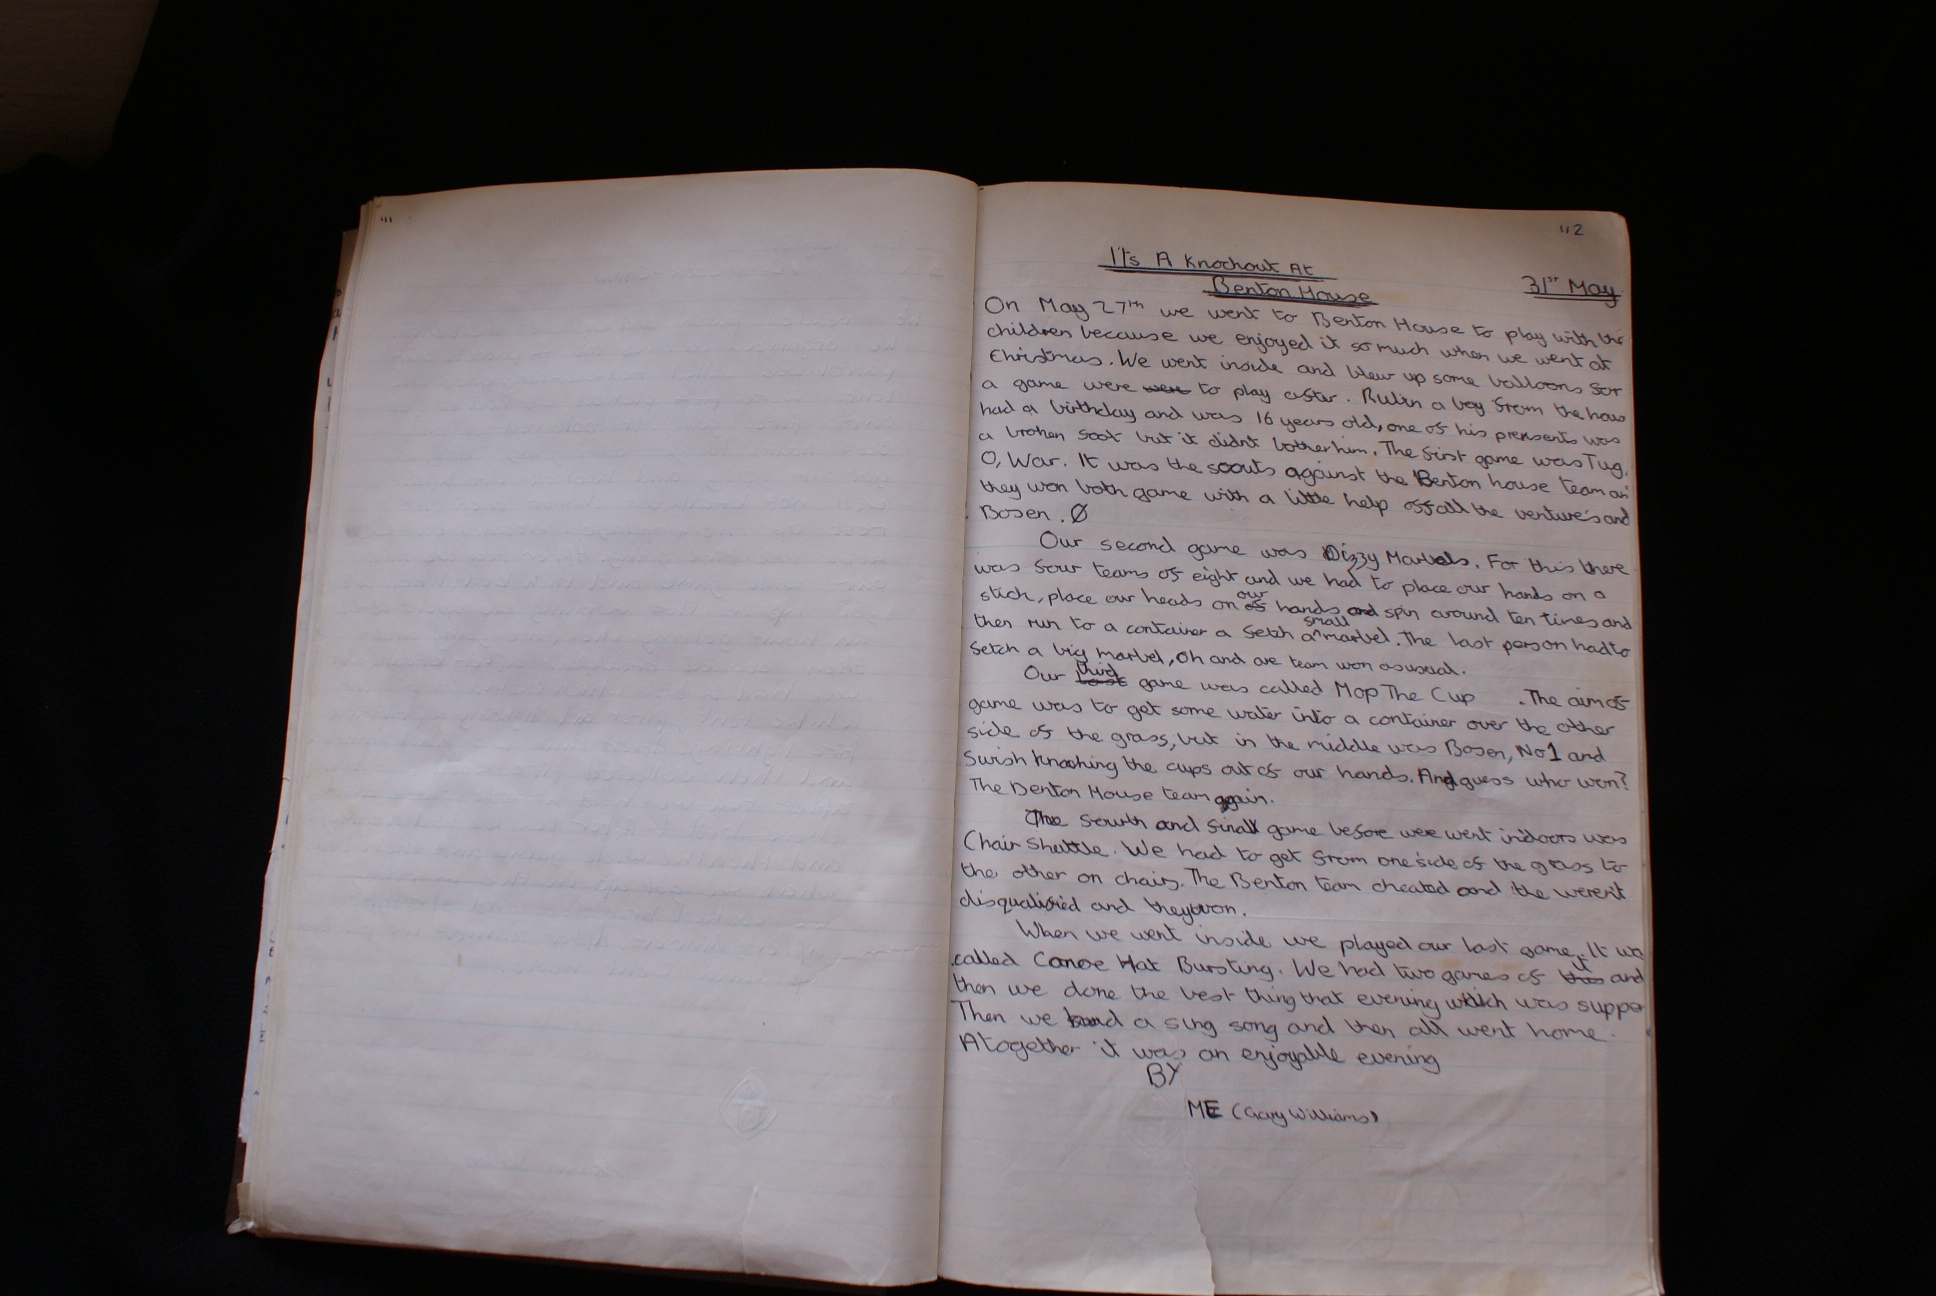 111
112
It's A Knockout At
Benton House
31st May
On May 27th we went to Benton House to play with the
children because we enjoyed it so much when we went at
Christmas. We went inside and blew up some balloons for
a game were were to play after. a boy from the
had a birthday and was 16 years old, one of his presents was
a broken foot but it didn't bother him. The first game was Tug.
O, War. It was the scouts against the Benton house team an
they won both game with a little help off all the venture's and
Bosen. Ø
Our second game was Dizzy Marbels. For this there
was four teams of eight and we had to place our hands on a
stick, place our heads on our hands and spin around ten times and
then run to a container a fetch a small marbel. The last person had to
fetch a big marbel, Oh and are team won as usual.
Our third game was called Mop The Cup . The aim of
game was to get some water into a container over the other
side of the grass, but in the middle was Bosen, No1 and
Swish knocking the cups out of our hands. And guess who won?
The Benton House team again.
The fourth and final game before wee went indoors was
Chair Shuttle. We had to get from one side of the grass to
the other on chairs. The Benton team cheated and the weren't
disqualified and they won.
When we went inside we played our last game. It wa
called Canoe Hat Bursting. We had two games of it and
then we done the best thing that evening which was suppe
Then we had a sing song and then all went home.
Altogether it was an enjoyable evening
BY
ME (Gary Williams)